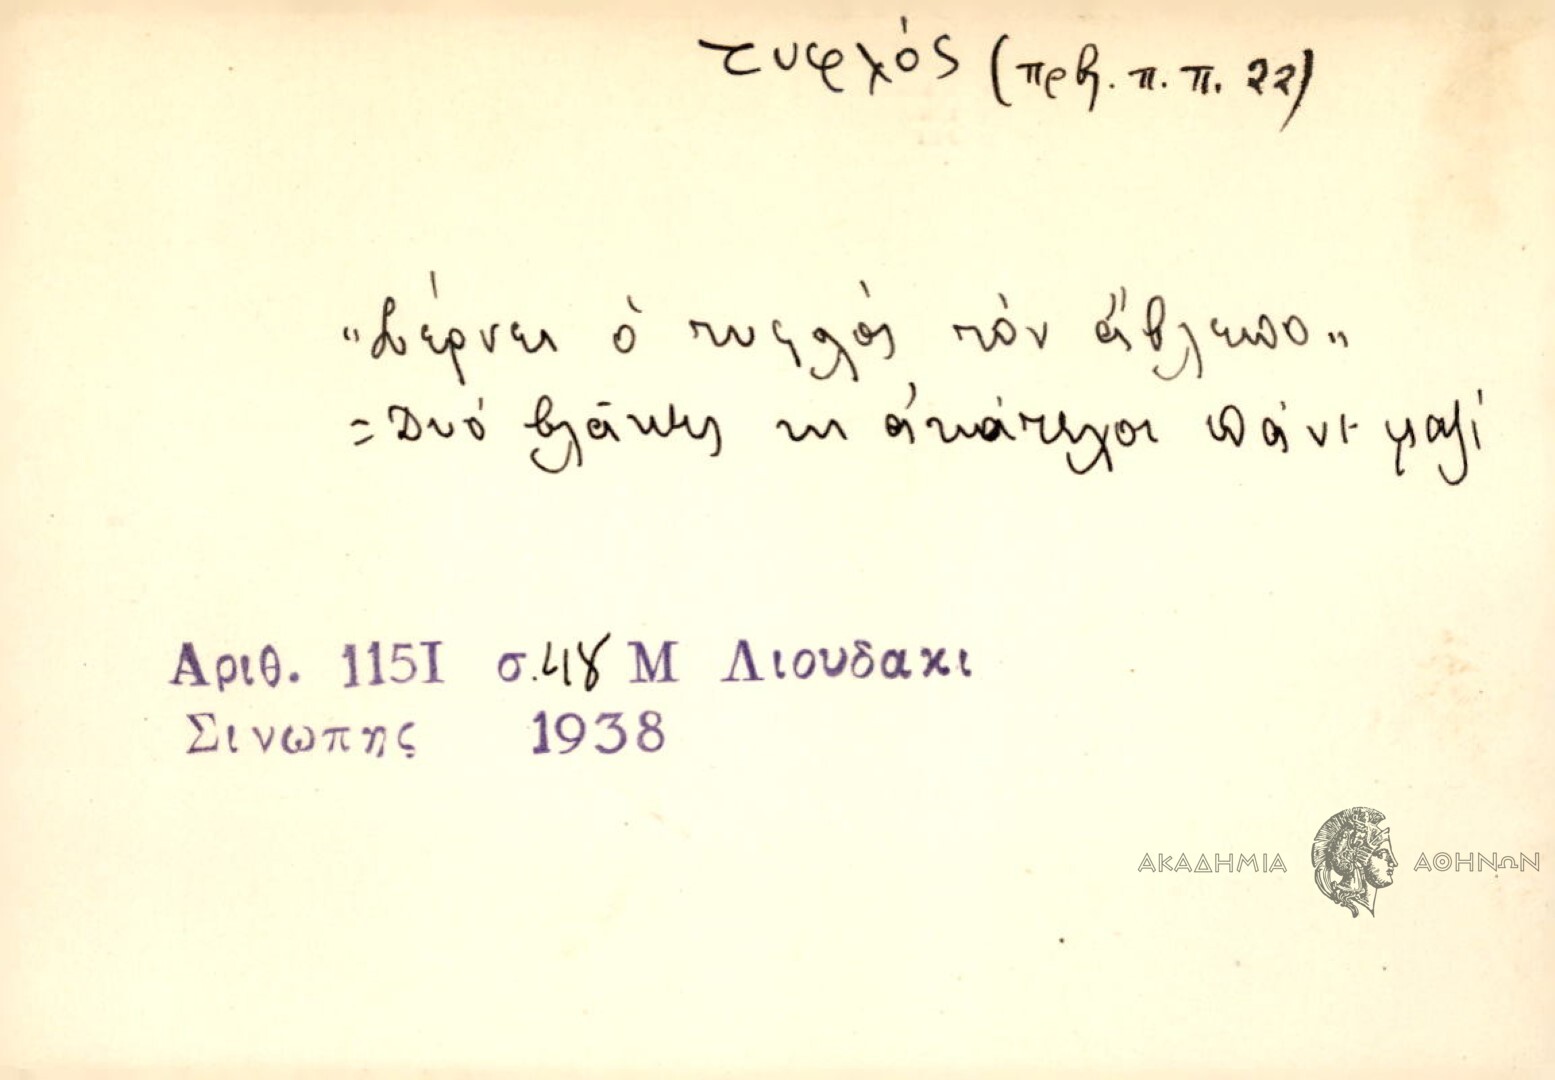 τυφλός (πρβ. π. π. 22)
"Σέρνει ὁ τυφλὸς τὸν ἄβλεπο"
= Δυό βλᾶκες κι ἀκάτεχοι πᾶνε μαζί
Αριθ. 1151 σ. 48 Μ Λιουδακι
Σινωπης 1938
ΑΚΑΔΗΜΙΑ ΑΘΗΝΩΝ